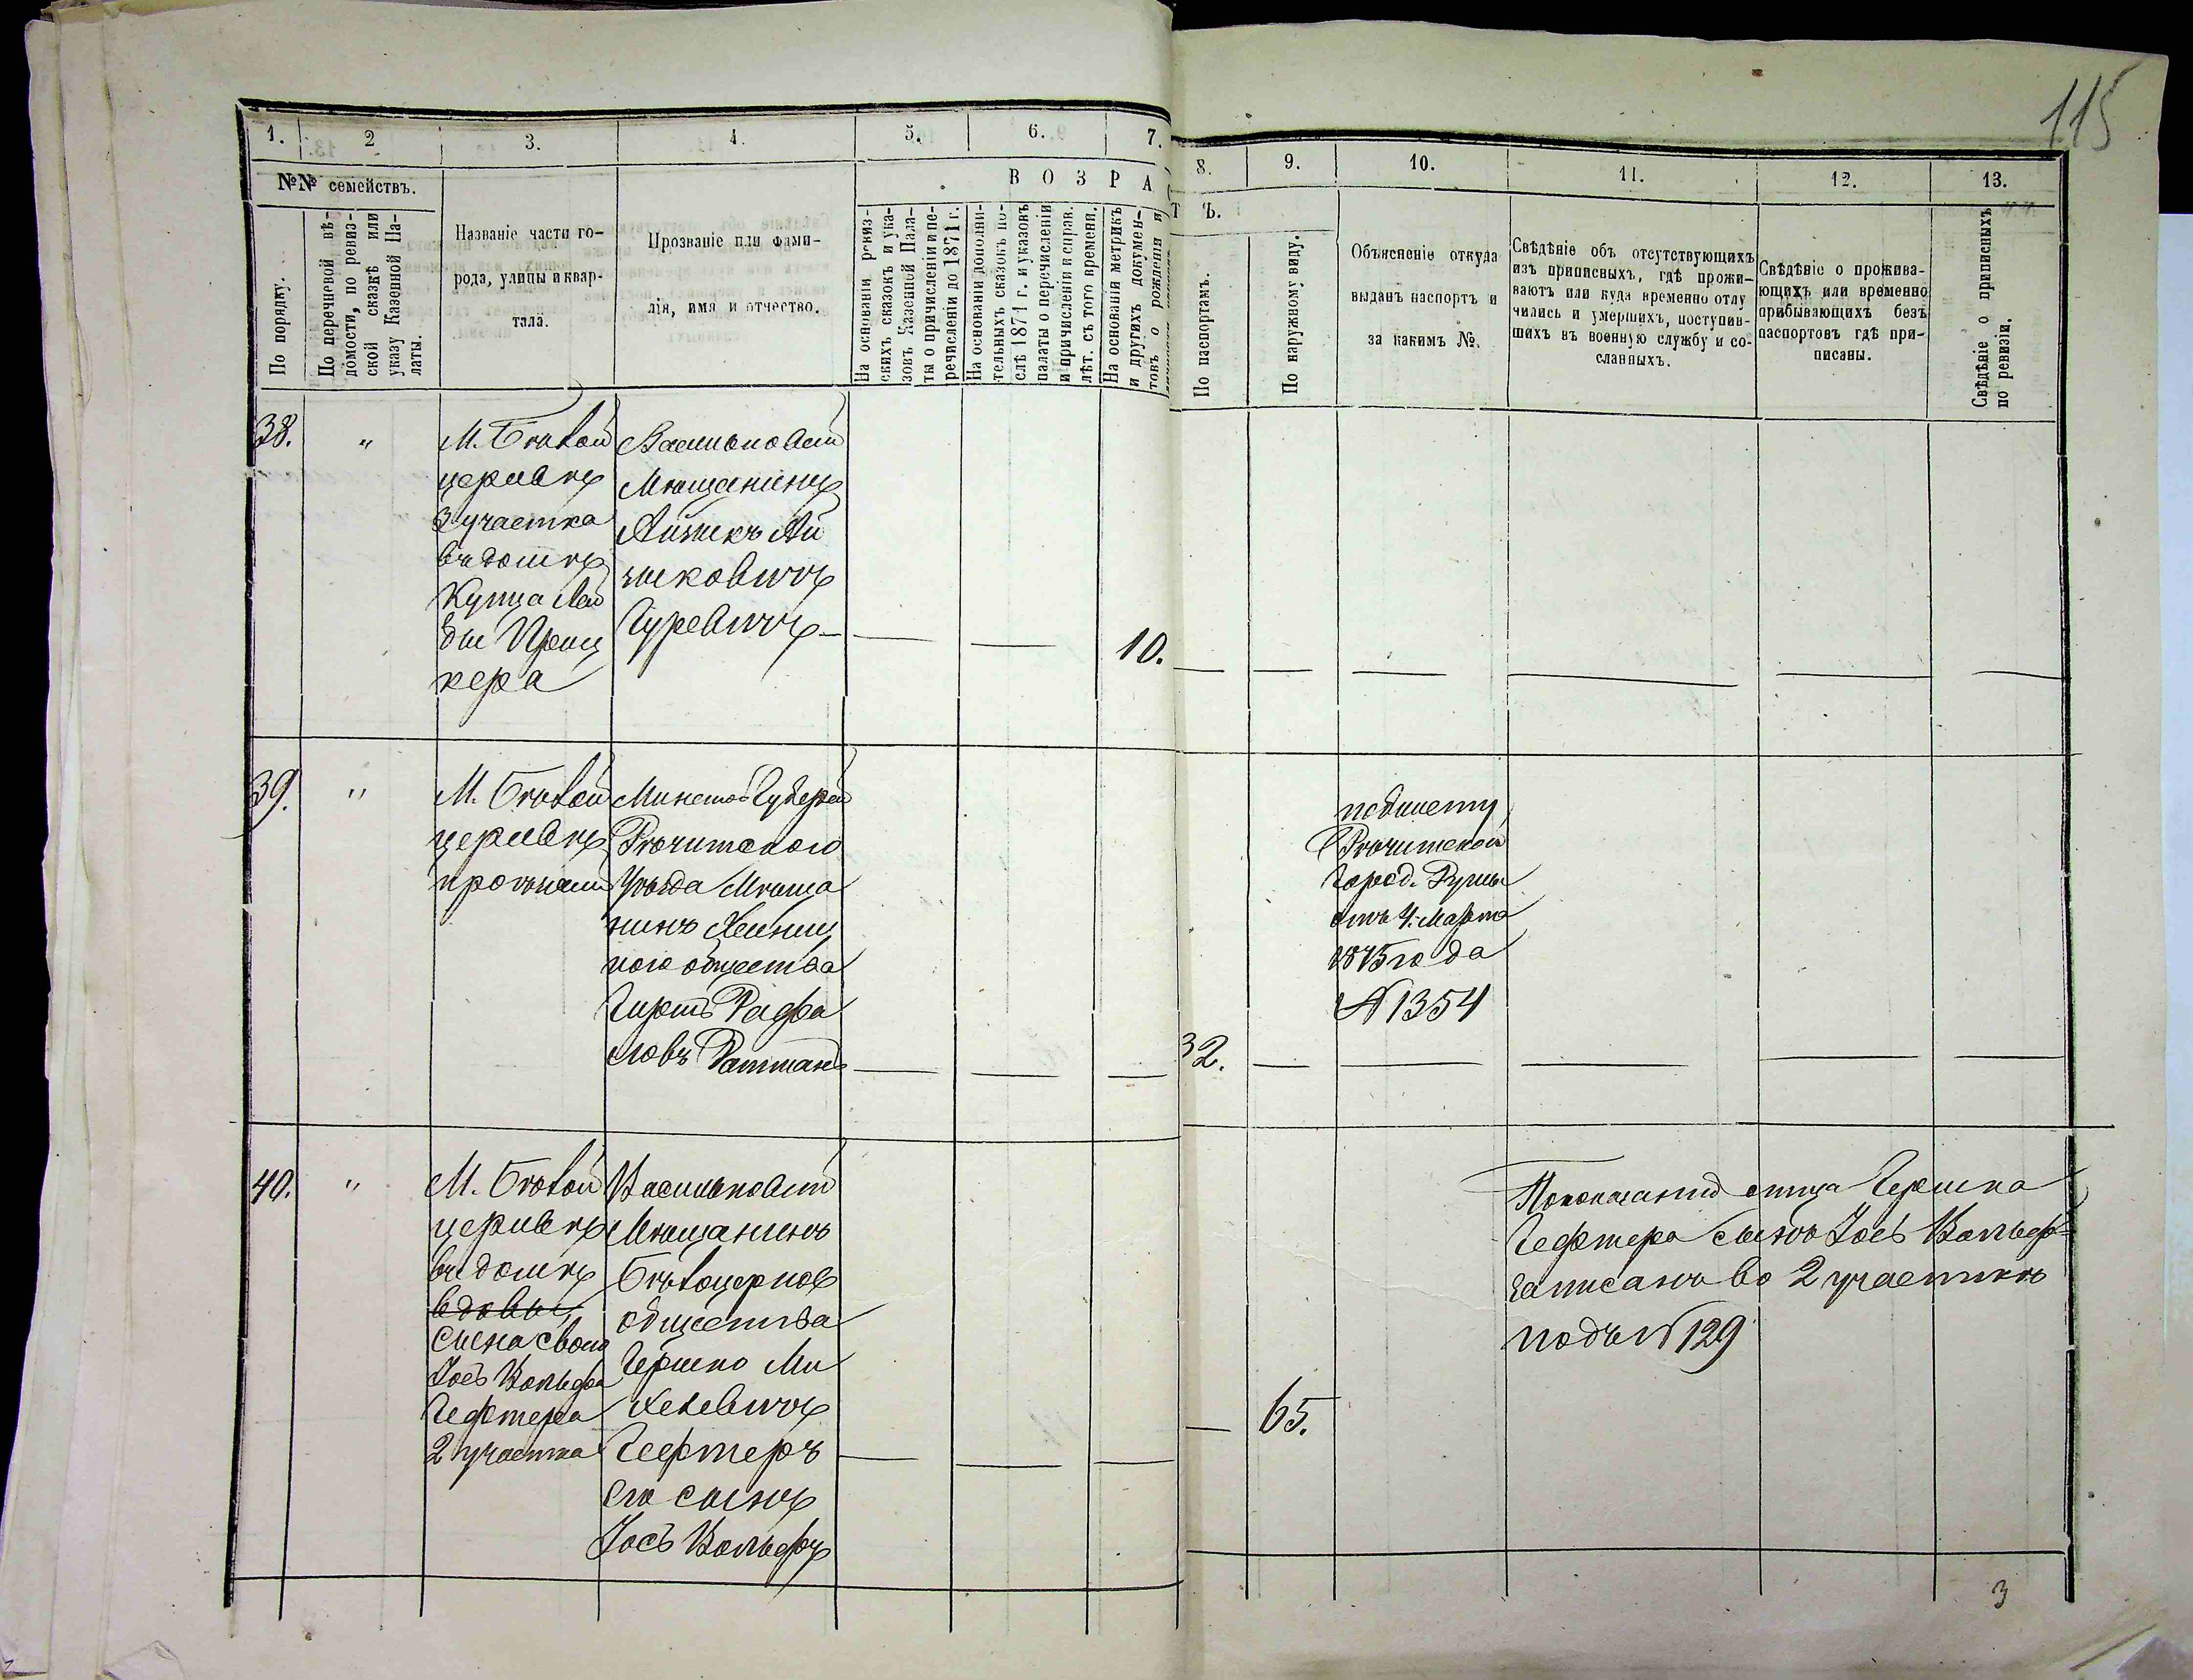 115
1.
2
3.
4.
5.
6.
7.
8.
9.
10.
11.
12.
13.
№№ семействъ.
По порядку.
По перечневой вѣ-
домости, по ревиз-
ской сказкѣ или
указу Казенной Па-
латы.
Названіе части го-
рода, улицы и квар-
тала.
Прозваніе или фами-
лія, имя и отчество.
ВОЗРА
Т Ъ.
На основаніи ревиз-
скихъ сказокъ и ука-
зовъ Казенной Пала-
ты о причисленіи и пе-
речисленіи до 1871 г.
На основаніи дополни-
тельныхъ сказокъ по-
слѣ 1871 г. и указовъ
палаты о перечисленіи
и причисленіи и справ.
лѣт. съ того времени.
На основаніи метрикъ
и другихъ докумен-
товъ о рожденія и
По паспортамъ.
По наружному виду.
Объясненіе откуда
выданъ паспортъ и
за какимъ №.
Свѣдѣніе объ отсутствующихъ
изъ приписныхъ, гдѣ прожи-
ваютъ или куда временно отлу
чились и умершихъ, поступив-
шихъ въ военную службу и со-
сланныхъ.
Свѣдѣніе о прожива-
ющихъ или временно
прибывающихъ безъ
паспортовъ гдѣ при-
писаны.
Свѣдѣніе о приписныхъ
по ревизіи.
38.
"
М. Бѣлой
церквѣ
3 участка
въ домѣ
Купца Лей
бы Приц
кера
Васильковскій
Мѣщанинъ
Айзикъ Ай
зиковичъ
Гуревичъ
10.
39.
"
М. Бѣлой
церквѣ
Минской Губерніи
Рѣчитскаго
Уѣзда Мѣща
нинъ
ного общества
Рафа
ловъ
32.
Рѣчитской
Город. Думы
отъ 4. Марта
1875 года
№ 1354
40.
"
М. Бѣлой
церквѣ
въ домѣ
вдовы
Сына своего
Іосъ Вольфа
Гефтера
2 участка
Васильковскій
Мѣщанинъ
Бѣлоцерков
общества
Гершко Ми
хелевичъ
Гефтеръ
его сынъ
Іосъ Вольфъ
65.
отца Гершка
Гефтера сынъ Іосъ Вольфъ
записанъ во 2 участкѣ
подъ № 129
3